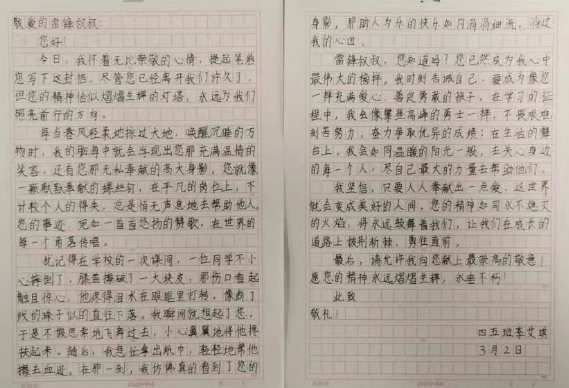 敬爱的雷锋叔叔:
您好!
今日,我怀着无比崇敬的心情,提起笔给
您写下这封信。尽管您已经离开我们许久了,
但您的精神恰似熠熠生辉的灯塔,永远为我们
照亮前行的方向。
每当春风轻柔地掠过大地,唤醒沉睡的万
物时,我的脑海中就会浮现出您那充满温情的
笑容,还有您那无私奉献的高大身影。您就像
一颗默默奉献的螺丝钉,在平凡的岗位上,不
计较个人的得失,总是悄无声息地去帮助他人。
您的事迹,宛如一首首悠扬的赞歌,在世界的
每一个角落传唱。
犹记得在学校的一次课间,一位同学不小
心摔倒了,膝盖擦破了一大块皮,那伤口看起
触目惊心,他疼得泪水在眼眶里打转,像断了
线的珠子似的直往下落。我瞬间就想起了您,
于是不假思索地飞奔过去,小心翼翼地将他搀
扶起来。随后,我急忙拿出纸巾,轻轻地帮他
擦去血迹。在那一刻,我仿佛真的看到了您的
身影,帮助人为乐的快乐如同涓涓细流,淌过
我的心田。
雷锋叔叔,您知道吗?您已然成为我心中
最伟大的榜样。我时刻告诫自己,要成为像您
一样充满爱心、善良勇敢的孩子。在学习的征
程中,我会像攀登高峰的勇士一样,不畏艰难
刻苦努力,奋力争取优异的成绩;在生活的舞
台上,我会如同温暖的阳光一般,去关心身边
的每一个人,尽自己最大的力量去帮助他们。
我坚信,只要人人奉献出一点爱,这世界
就会变成美好的人间。您的精神如同永不熄灭
的火焰,将永远鼓舞着我们,让我们在成长的
道路上披荆斩棘、勇往直前。
最后,请允许我向您献上最崇高的敬意!
愿您的精神永远熠熠生辉,永垂不朽!
此致
敬礼!
四五班李艾琪
3月2日